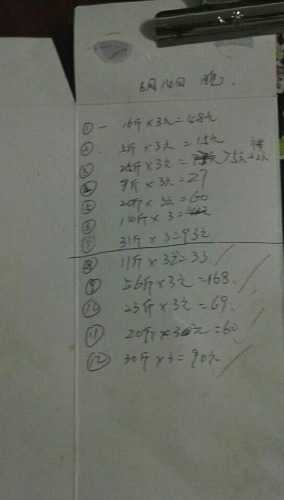 6月10日 晚
① 16斤×3元=48元
② 5斤×3元=15元
③ 25斤×3元=75元
④ 9斤×3元=27
⑤ 20斤×3元=60
⑥ 斤×3=
⑦ 31斤×3=93元
⑧ 11斤×3元=33
⑨ 56斤×3元=168
⑩ 23斤×3元=69
⑪ 20斤×3元=60
⑫ 30斤×3=90元